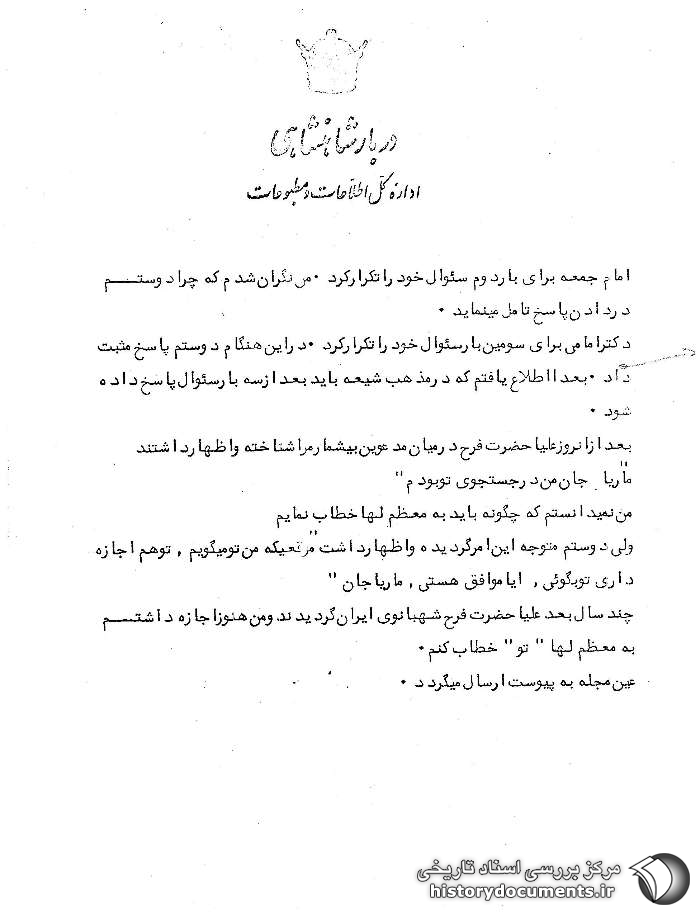 دربار شاهنشاهی
اداره کل اطلاعات و مطبوعات
امام جمعه برای بار دوم سئوال خود را تکرار کرد ۰ من نگران شدم که چرا دوستم
در دادن پاسخ تامل مینماید ۰
دکتر امامی برای سومین بار سئوال خود را تکرار کرد ۰ در این هنگام دوستم پاسخ مثبت
داد ۰ بعدا اطلاع یافتم که در مذهب شیعه باید بعد از سه بار سئوال پاسخ داده
شود ۰
بعد از انروز علیا حضرت فرح در میان مدعوین بیشمار مرا شناخته و اظهار داشتند
"ماریا جان من در جستجوی تو بودم"
من نمیدانستم که چگونه باید به معظم لها خطاب نمایم
ولی دوستم متوجه این امر گردیده و اظهار داشت " موقعیکه من تو میگویم , تو هم اجازه
داری تو بگوئی , ایا موافق هستی , ماریا جان "
چند سال بعد علیا حضرت فرح شهبانوی ایران گردیدند و من هنوز اجازه داشتم
به معظم لها " تو " خطاب کنم ۰
عین مجله به پیوست ارسال میگردد ۰
مرکز بررسی اسناد تاریخی
historydocuments.ir